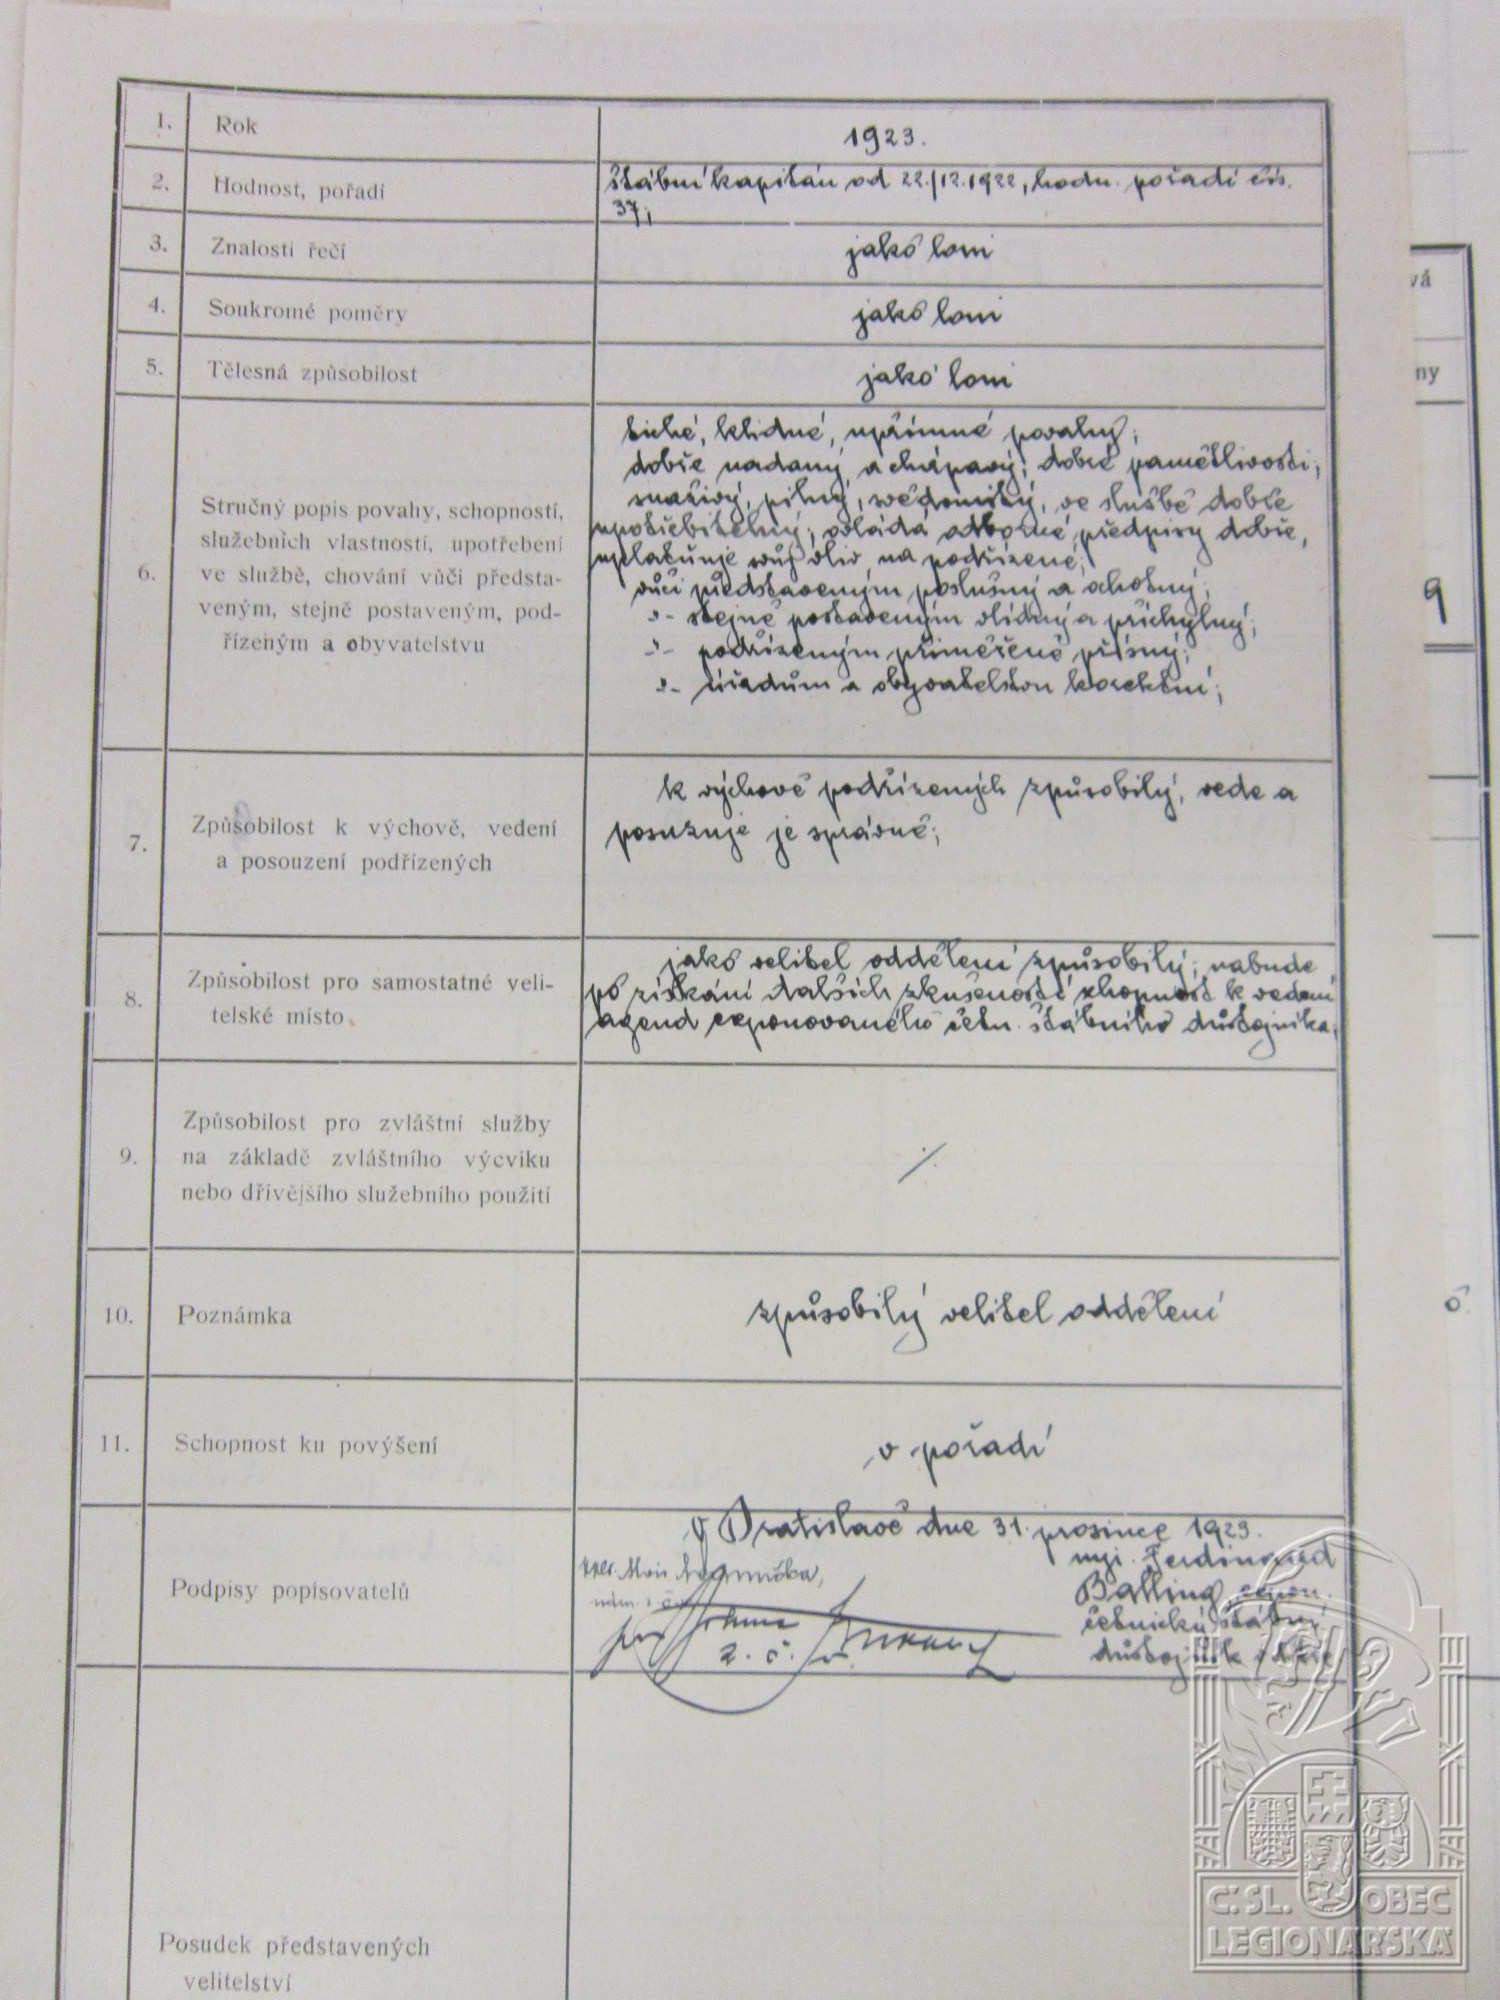 1. Rok 1923.
2. Hodnost, pořadí štábní kapitán od 22./12.1922, hodn. pořadí čís.
37;
3. Znalosti řečí jako loni
4. Soukromé poměry jako loni
5. Tělesná způsobilost jako loni
6. Stručný popis povahy, schopností,
služebních vlastností, upotřebení
ve službě, chování vůči předsta-
veným, stejně postaveným, pod-
řízeným a obyvatelstvu
tiché, klidné, upřímné povahy;
dobře nadaný a chápavý; dobré pamětlivosti;
snaživý, pilný, svědomitý, ve službě dobře
upotřebitelný; ovládá odborné předpisy dobře,
uplatňuje svůj vliv na podřízené;
vůči představeným poslušný a ochotný;
-"- stejně postaveným vlídný a příchylný;
-"- podřízeným přiměřeně přísný;
-"- úřadům a obyvatelstvu korektní;
7. Způsobilost k výchově, vedení
a posouzení podřízených
k výchově podřízených způsobilý, vede a
posuzuje je správně;
8. Způsobilost pro samostatné veli-
telské místo
jako velitel oddělení způsobilý; nabude
po získání dalších zkušeností schopnost k vedení
agend exponovaného četn. štábního důstojníka.
9. Způsobilost pro zvláštní služby
na základě zvláštního výcviku
nebo dřívějšího služebního použití
./.
10. Poznámka způsobilý velitel oddělení
11. Schopnost ku povýšení v pořadí
Podpisy popisovatelů
V Bratislavě dne 31. prosince 1923.
mjr. Ferdinand
Balling, expon.
četnický štábní
důstojník
Posudek představených
velitelství
vá
ny
9
Č.SL. OBEC
LEGIONÁŘSKÁ